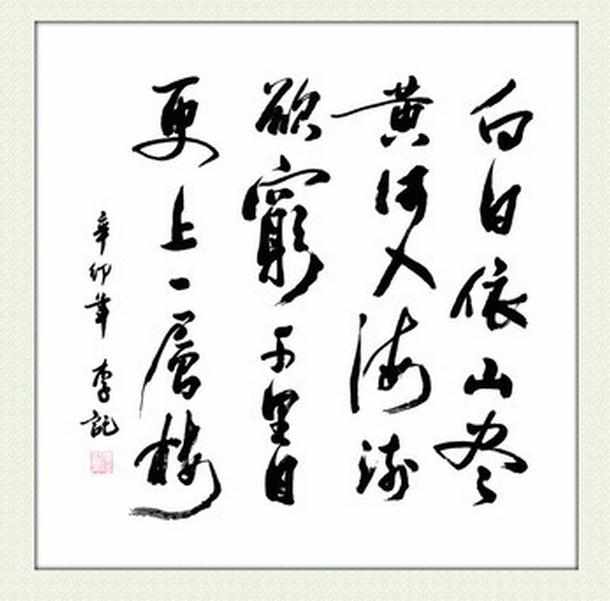 白日依山尽
黄河入海流
欲窮千里目
更上一層楼
辛卯 李